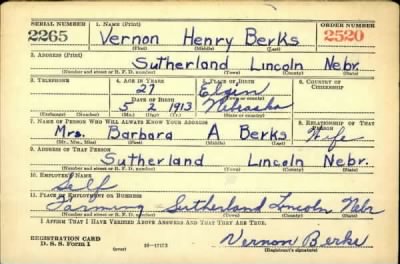 SERIAL NUMBER 1. NAME (Print) ORDER NUMBER
2265 Vernon Henry Berks 2520
(First) (Middle) (Last)
2. ADDRESS (Print)
Sutherland Lincoln Nebr.
(Number and street or R. F. D. number) (Town) (County) (State)
3. TELEPHONE 4. AGE IN YEARS 5. PLACE OF BIRTH 6. COUNTRY OF CITIZENSHIP
27 Elgin
DATE OF BIRTH (Town or county)
5 2 1913 Nebraska
(Exchange) (Number) (Mo.) (Day) (Yr.) (State or country)
7. NAME OF PERSON WHO WILL ALWAYS KNOW YOUR ADDRESS 8. RELATIONSHIP OF THAT PERSON
Mrs. Barbara A Berks Wife
(Mr., Mrs., Miss) (First) (Middle) (Last)
9. ADDRESS OF THAT PERSON
Sutherland Lincoln Nebr.
(Number and street or R. F. D. number) (Town) (County) (State)
10. EMPLOYER'S NAME
Self
11. PLACE OF EMPLOYMENT OR BUSINESS
Farming Sutherland Lincoln Nebr
(Number and street or R. F. D. number) (Town) (County) (State)
I AFFIRM THAT I HAVE VERIFIED ABOVE ANSWERS AND THAT THEY ARE TRUE.
REGISTRATION CARD
D. S. S. Form 1 (over) 16—17105 Vernon Berks
(Registrant's signature)